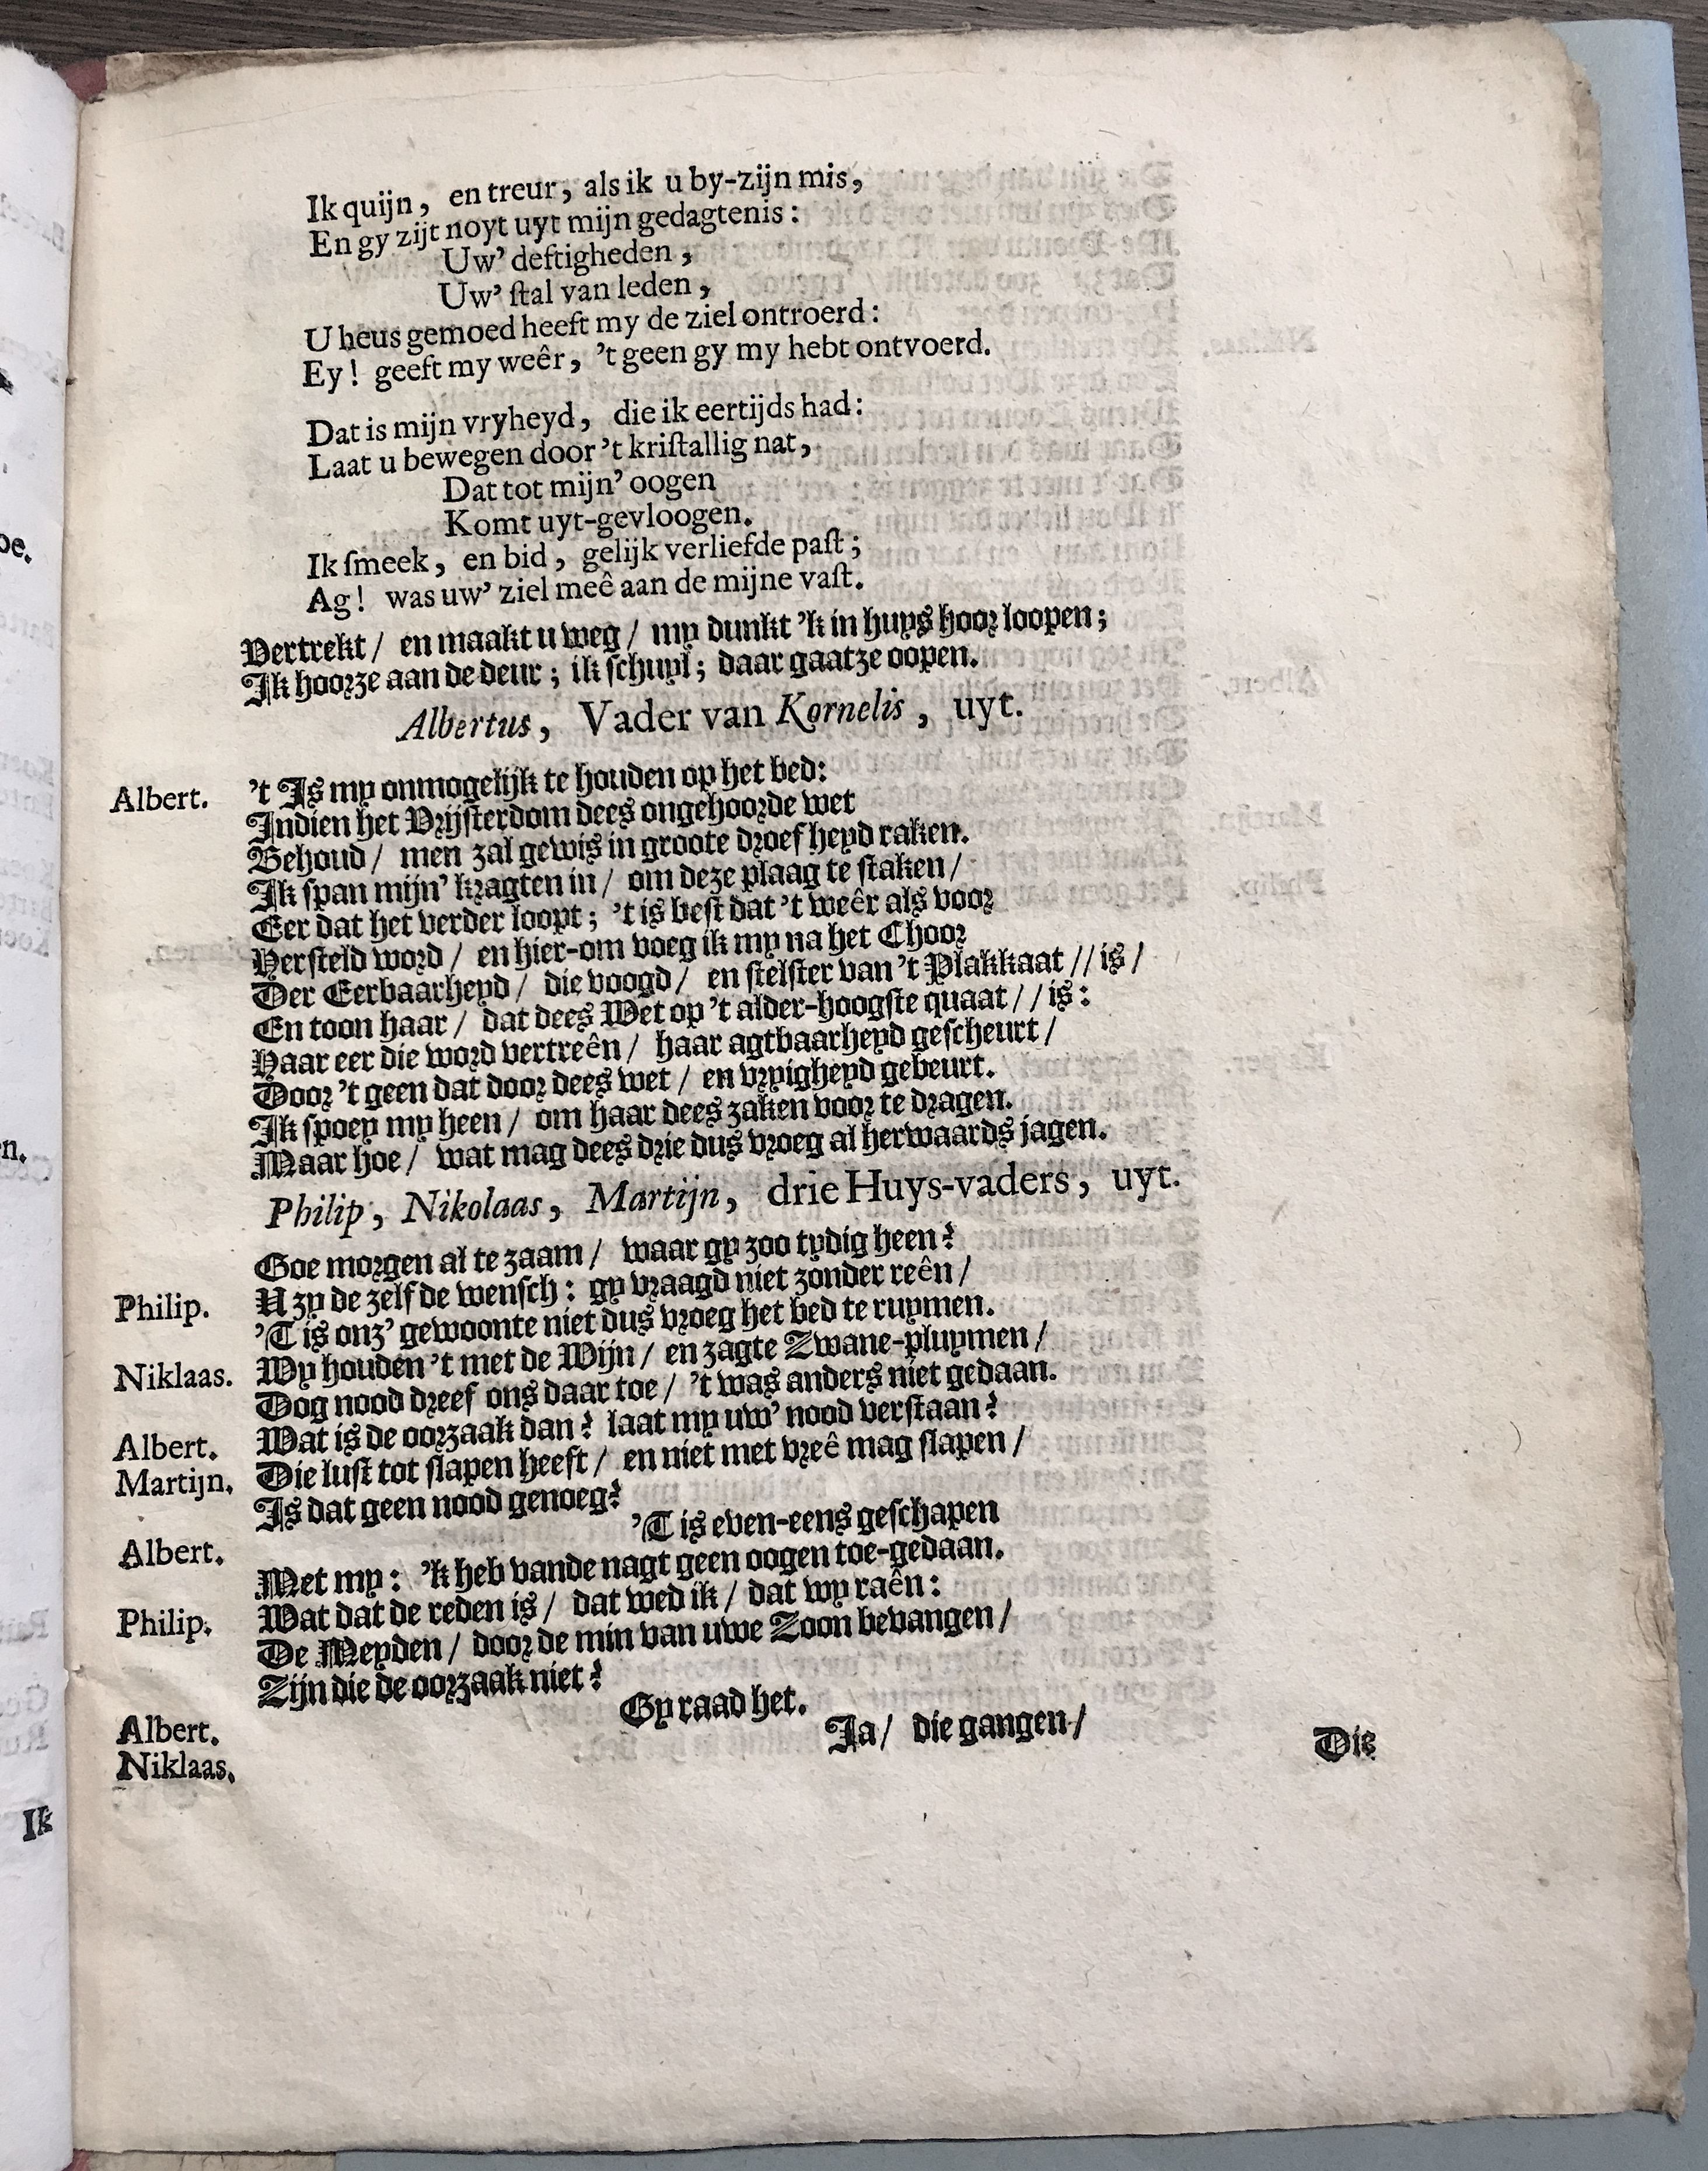 Ik quijn, en treur, als ik u by-zijn mis,
En gy zijt noyt uyt mijn gedagtenis:
Uw' deftigheden,
Uw' ſtal van leden,
U heus gemoed heeft my de ziel ontroerd:
Ey! geeft my weêr, 't geen gy my hebt ontvoerd.
Dat is mijn vryheyd, die ik eertijds had:
Laat u bewegen door 't kriſtallig nat,
Dat tot mijn' oogen
Komt uyt-gevloogen.
Ik ſmeek, en bid, gelijk verliefde paſt;
Ag! was uw' ziel meê aan de mijne vaſt.
Vertrekt / en maakt u weg / my dunkt 'k in huys hoor loopen;
Ik hoorze aan de deur; ik ſchuyl; daar gaatze oopen.
Albertus, Vader van Kornelis, uyt.
Albert. 't Is my onmogelijk te houden op het bed:
Indien het Vrijſterdom dees ongehoorde wet
Behoud / men zal gewis in groote droefheyd raken.
Ik ſpan mijn' kragten in / om deze plaag te ſtaken /
Eer dat het verder loopt; 't is beſt dat 't weêr als voor
Herſteld word / en hier-om voeg ik my na het Choor
Der Eerbaarheyd / die voogd / en ſtelſter van 't Plakkaat // is /
En toon haar / dat dees Wet op 't alder-hoogſte quaat // is:
Haar eer die word vertreên / haar agtbaarheyd geſcheurt /
Door 't geen dat door dees wet / en vryigheyd gebeurt.
Ik ſpoey my heen / om haar dees zaken voor te dragen.
Maar hoe / wat mag dees drie dus vroeg al herwaards jagen.
Philip, Nikolaas, Martijn, drie Huys-vaders, uyt.
Goe morgen al te zaam / waar gy zoo tydig heen?
Philip. U zy de zelfde wenſch: gy vraagd niet zonder reên /
'T is onz' gewoonte niet dus vroeg het bed te ruymen.
Niklaas. Wy houden 't met de Wijn / en zagte Zwane-pluymen /
Dog nood dreef ons daar toe / 't was anders niet gedaan.
Albert. Wat is de oorzaak dan? laat my uw' nood verſtaan?
Martijn. Die luſt tot ſlapen heeft / en niet met vreê mag ſlapen /
Is dat geen nood genoeg?
Albert. 'T is even-eens geſchapen
Met my: 'k heb vande nagt geen oogen toe-gedaan.
Philip. Wat dat de reden is / dat wed ik / dat wy raên:
De Meyden / door de min van uwe Zoon bevangen /
Zijn die de oorzaak niet?
Albert. Gy raad het.
Niklaas. Ja / die gangen /
Die
Ik
oe.
n.